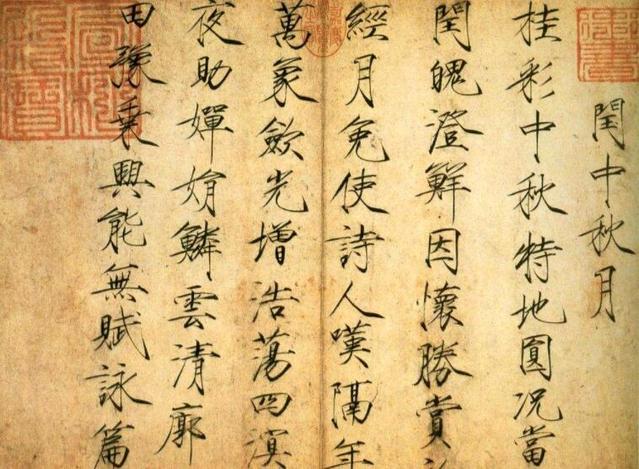 閏中秋月
桂彩中秋特地圓況當
閏魄澄鮮因懷勝賞
經月免使詩人嘆隔年
萬象歛光增浩蕩四溟
夜助嬋娟鱗雲清廓
田豫乗興能無賦詠篇